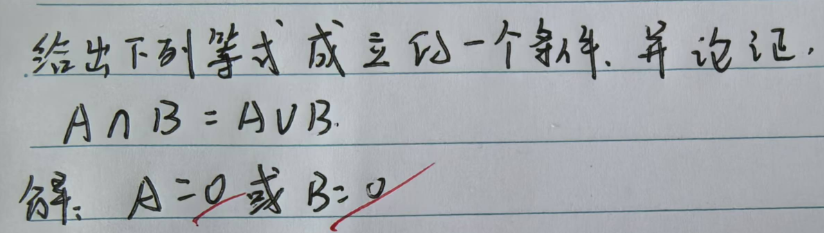 给出下列等式成立的一个条件.并论证.
A∩B=A∪B.
解: A=0或B=0